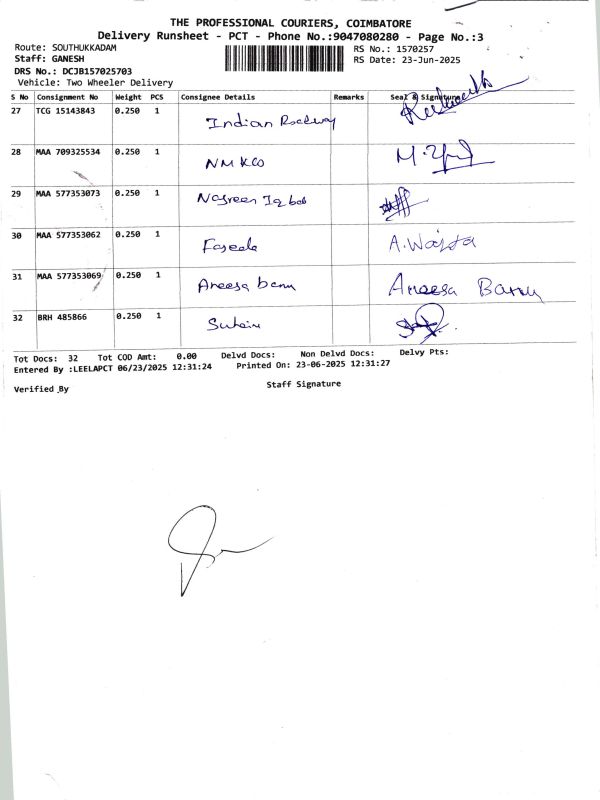 THE PROFESSIONAL COURIERS, COIMBATORE
Delivery Runsheet - PCT - Phone No.:9047080280 - Page No.:3
Route: SOUTHUKKADAM
RS No.: 1570257
Staff: GANESH
RS Date: 23-Jun-2025
DRS No.: DCJB157025703
Vehicle: Two Wheeler Delivery
S No Consignment No Weight PCS Consignee Details Remarks Seal & Signature
27 TCG 15143843 0.250 1 Indian
28 MAA 709325534 0.250 1 NMKCO
29 MAA 577353073 0.250 1 Nasreen Iqbal
30 MAA 577353062 0.250 1 A.
31 MAA 577353069 0.250 1 Aneesa banu Aneesa Banu
32 BRH 485866 0.250 1
Tot Docs: 32 Tot COD Amt: 0.00 Delvd Docs: Non Delvd Docs: Delvy Pts:
Entered By :LEELAPCT 06/23/2025 12:31:24 Printed On: 23-06-2025 12:31:27
Verified By Staff Signature